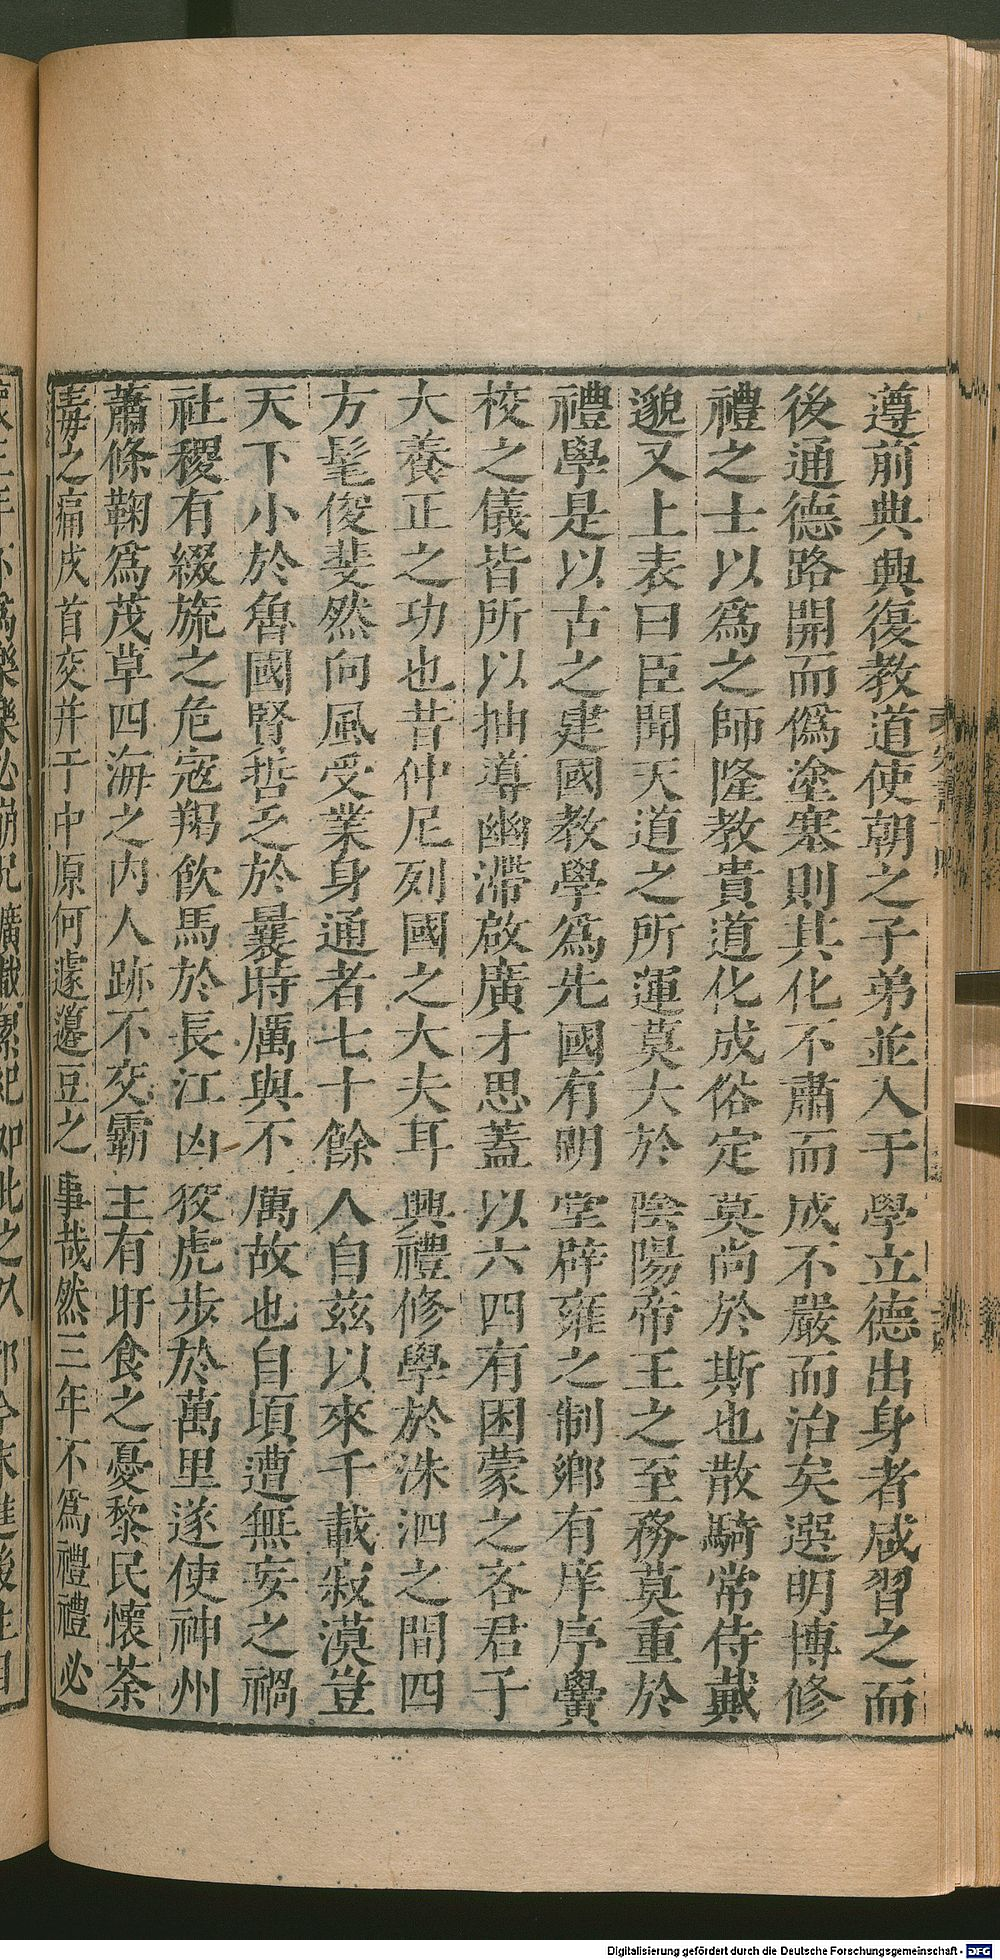 遵前典興復教道使朝之子弟並入于學立德出身者咸習之而
後通德路開而僞塗塞則其化不肅而成不嚴而治矣選明博修
禮之士以爲之師隆教貴道化成俗定莫尚於斯也散騎常侍戴
邈又上表曰臣聞天道之所運莫大於陰陽帝王之至務莫重於
禮學是以古之建國教學爲先國有明堂辟雍之制鄉有庠序黌
校之儀皆所以抽導幽滯啟廣才思蓋以六四有困蒙之吝君子
大養正之功也昔仲尼列國之大夫耳興禮修學於洙泗之間四
方髦俊斐然向風受業身通者七十餘人自茲以來千載寂漠豈
天下小於魯國賢哲乏於曩時厲與不厲故也自頃遭無妄之禍
社稷有綴旒之危寇羯飲馬於長江凶狡虎步於萬里遂使神州
蕭條鞠爲茂草四海之內人跡不交霸主有旰食之憂黎民懷荼
毒之痛戎首交并于中原何遽籩豆之事哉然三年不爲禮禮必
Digitalisierung gefördert durch die Deutsche Forschungsgemeinschaft - DFG